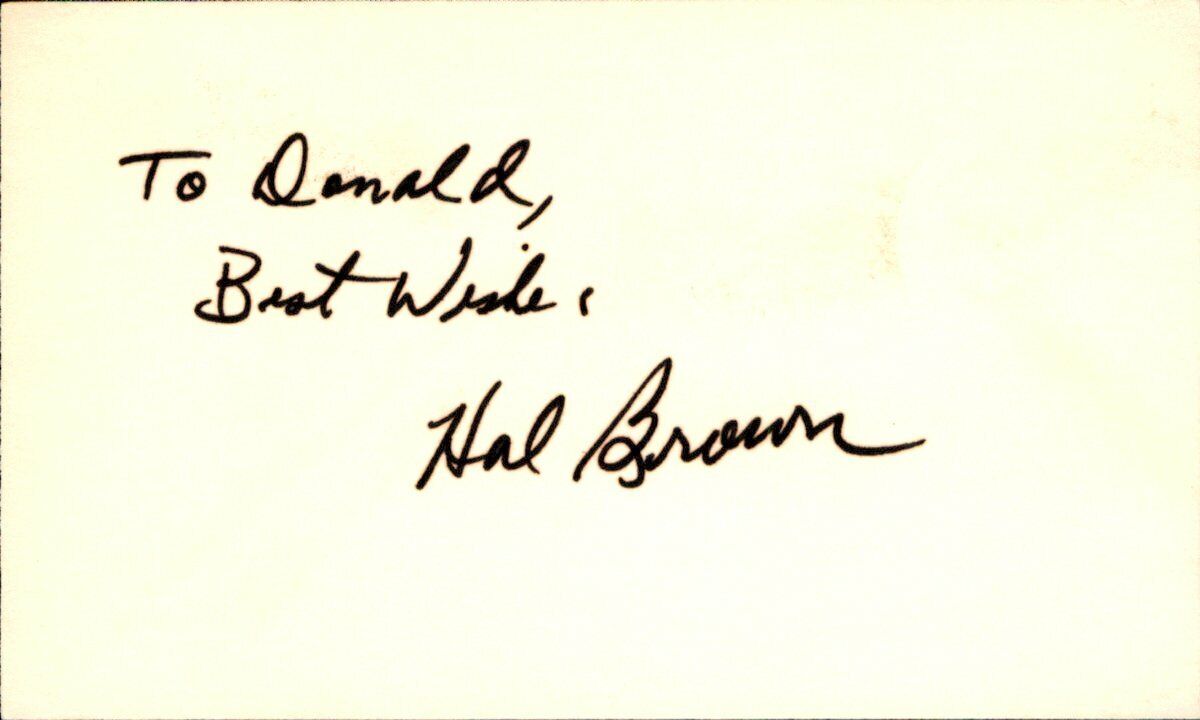 To Donald,
Best Wishes,
Hal Brown